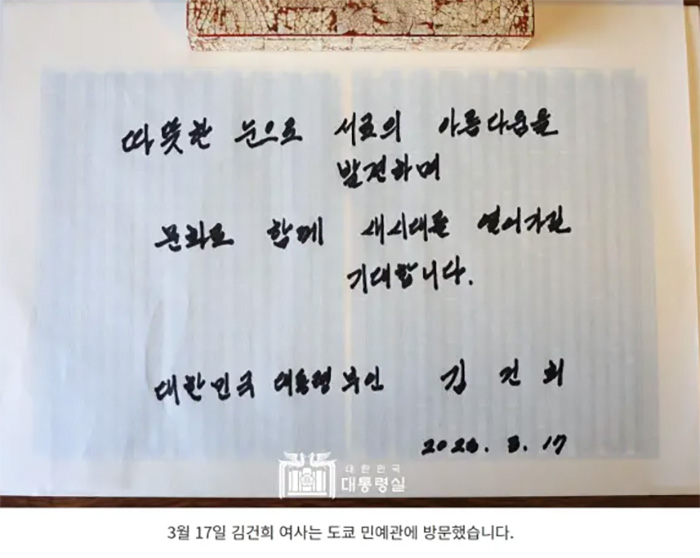 따뜻한 눈으로 서로의 아름다움을
발견하며
문화로 함께 새시대를 열어가길
기대합니다.
대한민국 대통령부인 김건희
3. 17
대한민국
대통령실
3월 17일 김건희 여사는 도쿄 민예관에 방문했습니다.